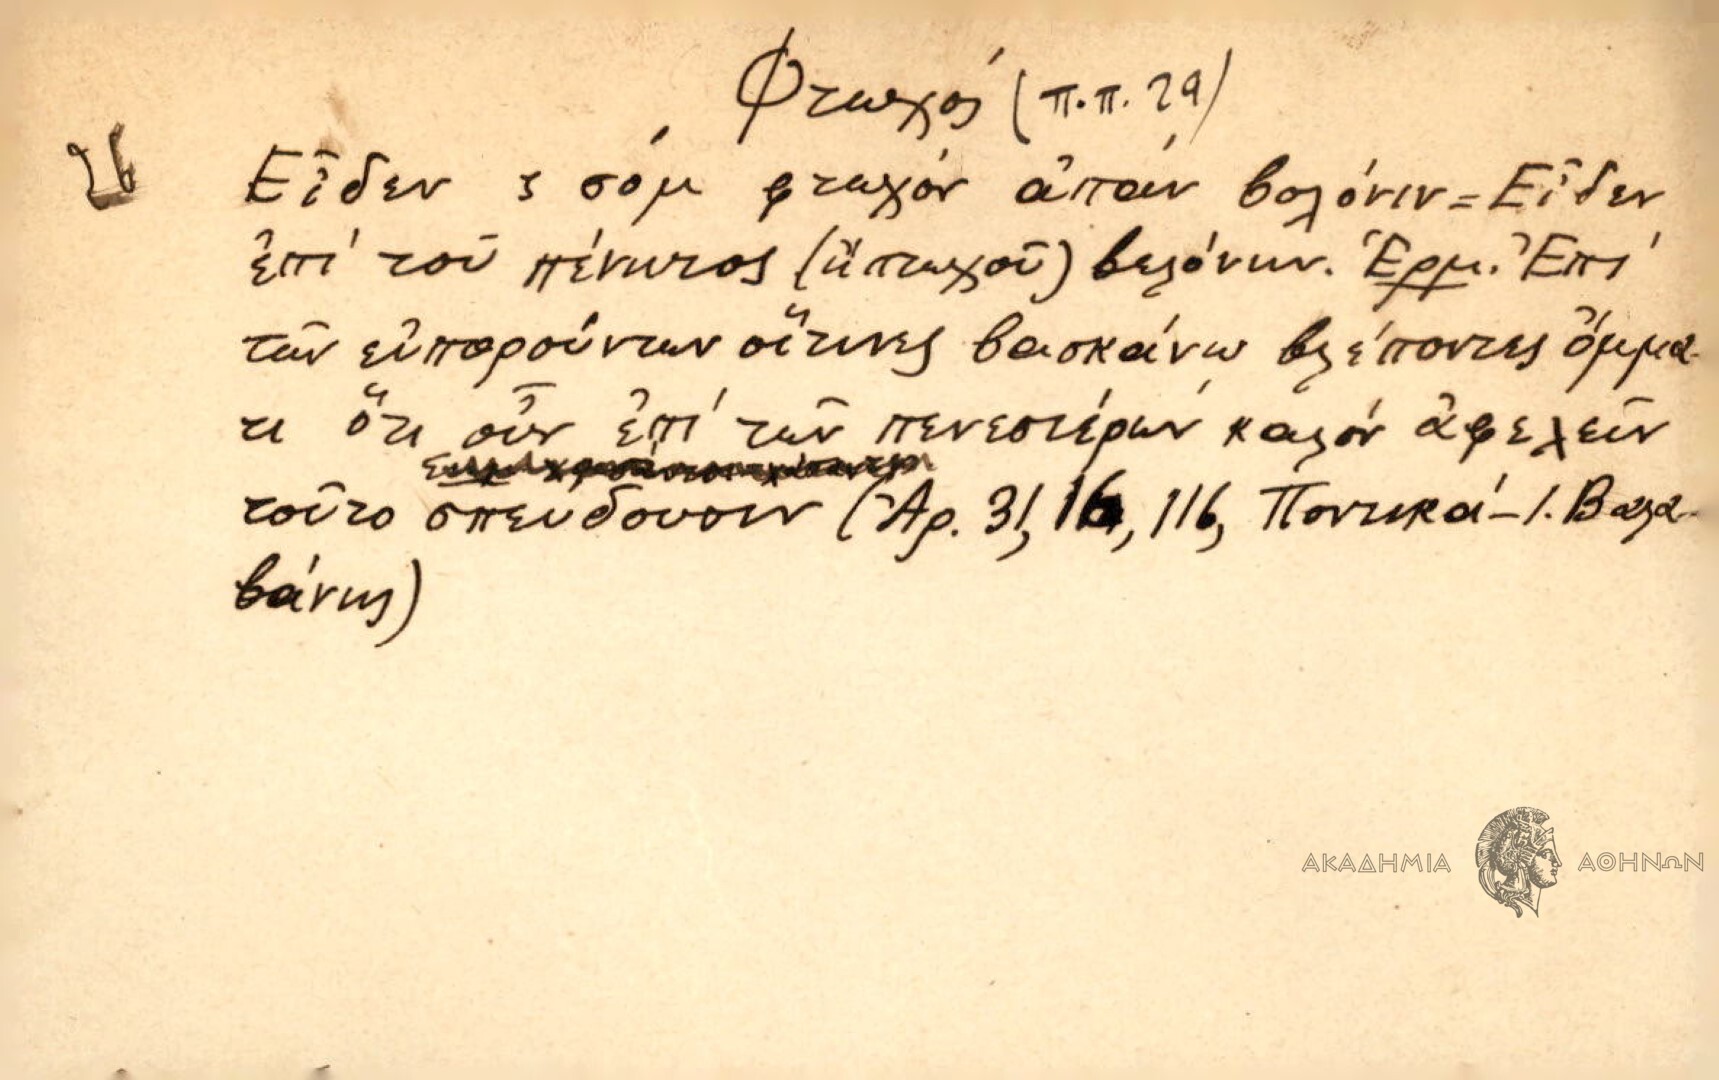 Φτωχός (π.π. 29)
16 Εἶδεν ς σόμ φτωχόν ἀπάν βολόνιν = Εἶδεν
ἐπί τοῦ πένητος (ἤ πτωχοῦ) βελόνην. Ἑρμ. Ἐπί
τῶν εὐπορούντων οἵτινες βασκάνω βλέποντες ὄμμα-
τι ὅτι οὖν ἐπί τῶν πενεστέρων καλόν ἀφελεῖν
τοῦτο σπεύδουσιν (Ἀρ. 31, 16, 116, Ποντικά - Ι. Βαλα-
βάνης)
ΑΚΑΔΗΜΙΑ ΑΘΗΝΩΝ